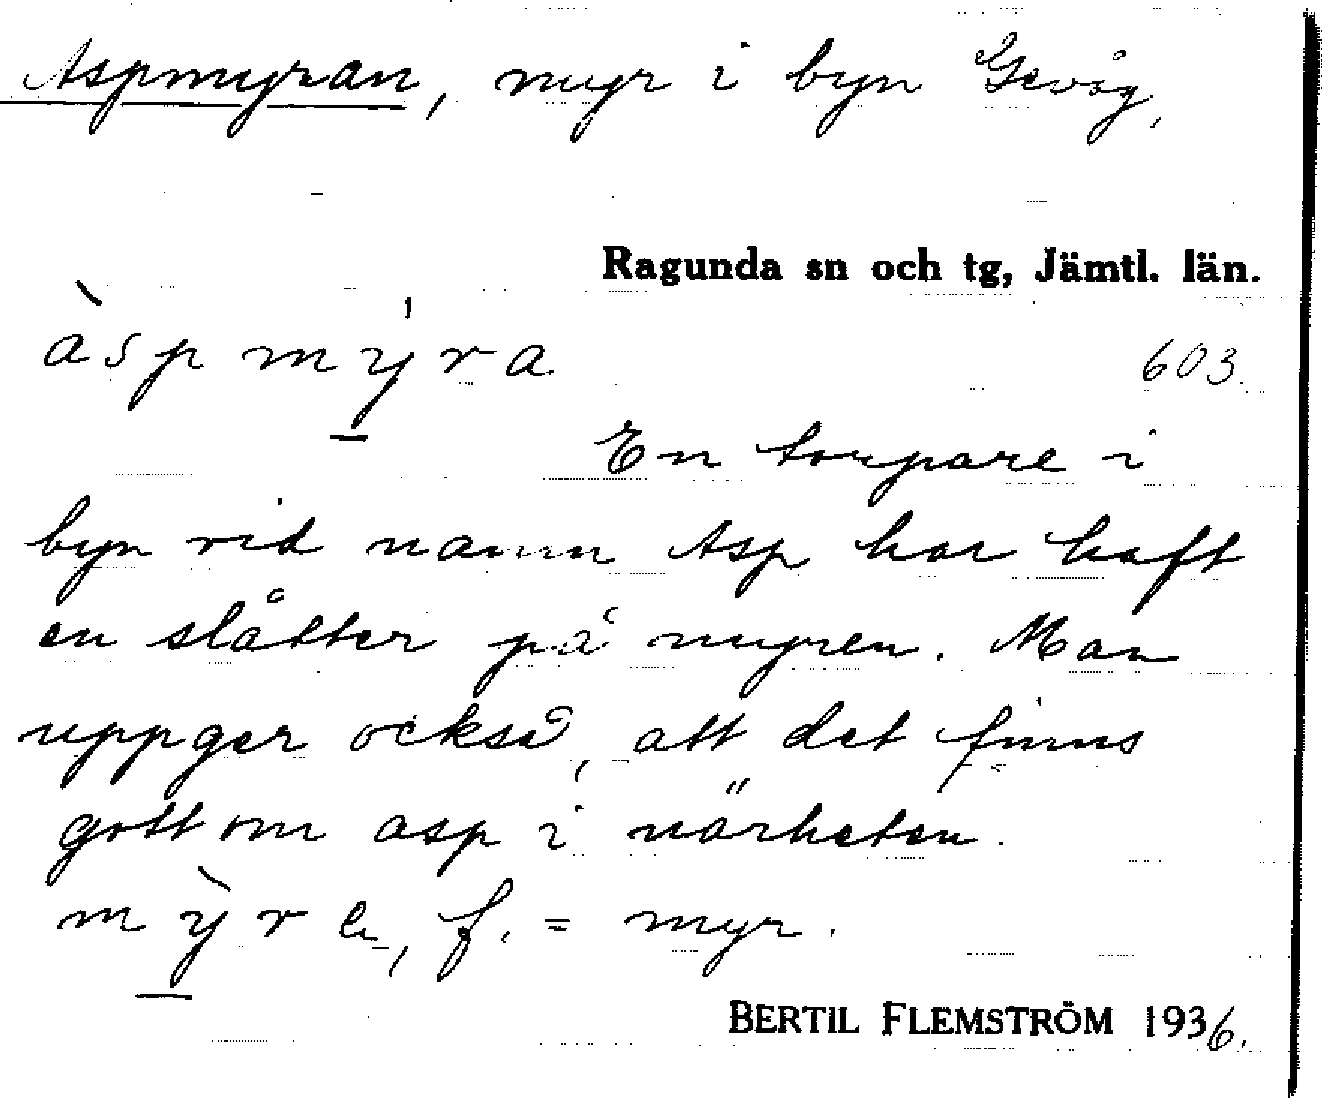 Aspmyran, myr i byn Gevåg,
Ragunda sn och tg, Jämtl. län.
àspmy̱ra
603.
En torpare i
byn vid namn Asp har haft
en slåtter på myren. Man
uppger också, att det finns
gott om asp i närheten.
mỳ̱re, f. = myr.
BERTIL FLEMSTRÖM 1936.